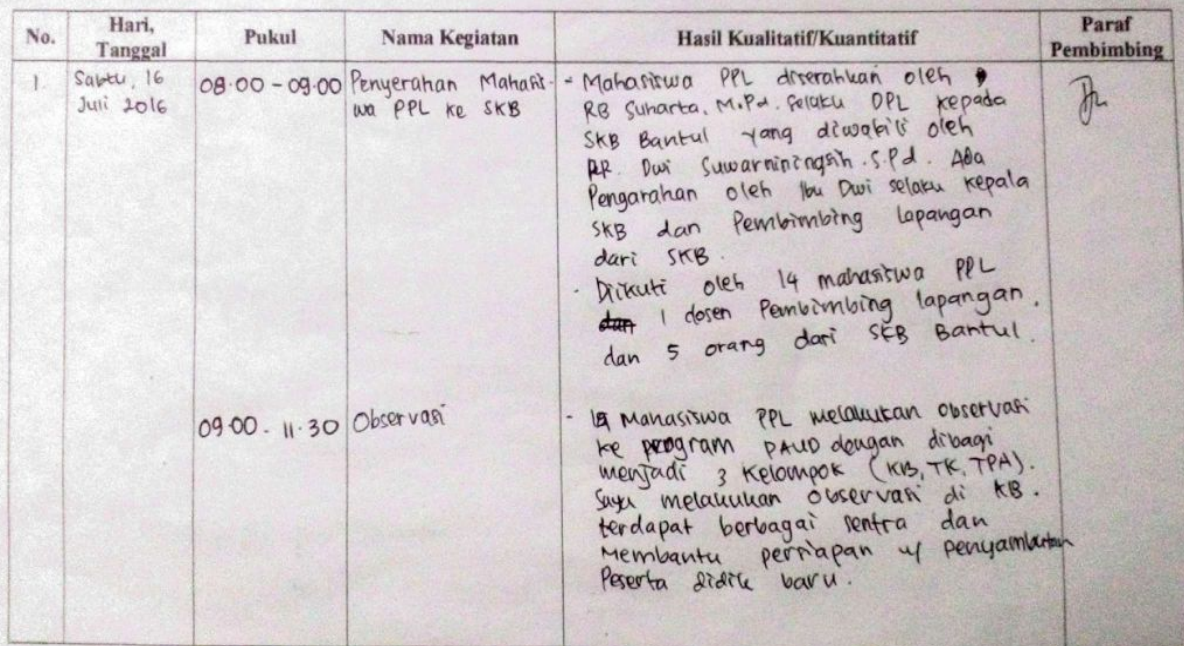 No. Hari, Tanggal Pukul Nama Kegiatan Hasil Kualitatif/Kuantitatif Paraf Pembimbing
1. Sabtu, 16 08.00 - 09.00 Penyerahan Mahasis- - Mahasiswa PPL diserahkan oleh
Juli 2016 wa PPL ke SKB RB Suharta, M.Pd. selaku DPL kepada
SKB Bantul yang diwakili oleh
RR. Dwi Suwarniningsih. S.Pd. Ada
Pengarahan oleh Ibu Dwi selaku Kepala
SKB dan Pembimbing Lapangan
dari SKB.
- Diikuti oleh 14 mahasiswa PPL
dan 1 dosen Pembimbing lapangan,
dan 5 orang dari SKB Bantul.
09.00 - 11.30 Observasi - Mahasiswa PPL melakukan observasi
ke program PAUD dengan dibagi
menjadi 3 Kelompok (KB, TK, TPA).
Saya melakukan Observasi di KB.
terdapat berbagai sentra dan
Membantu persiapan u/ penyambutan
Peserta didik baru.